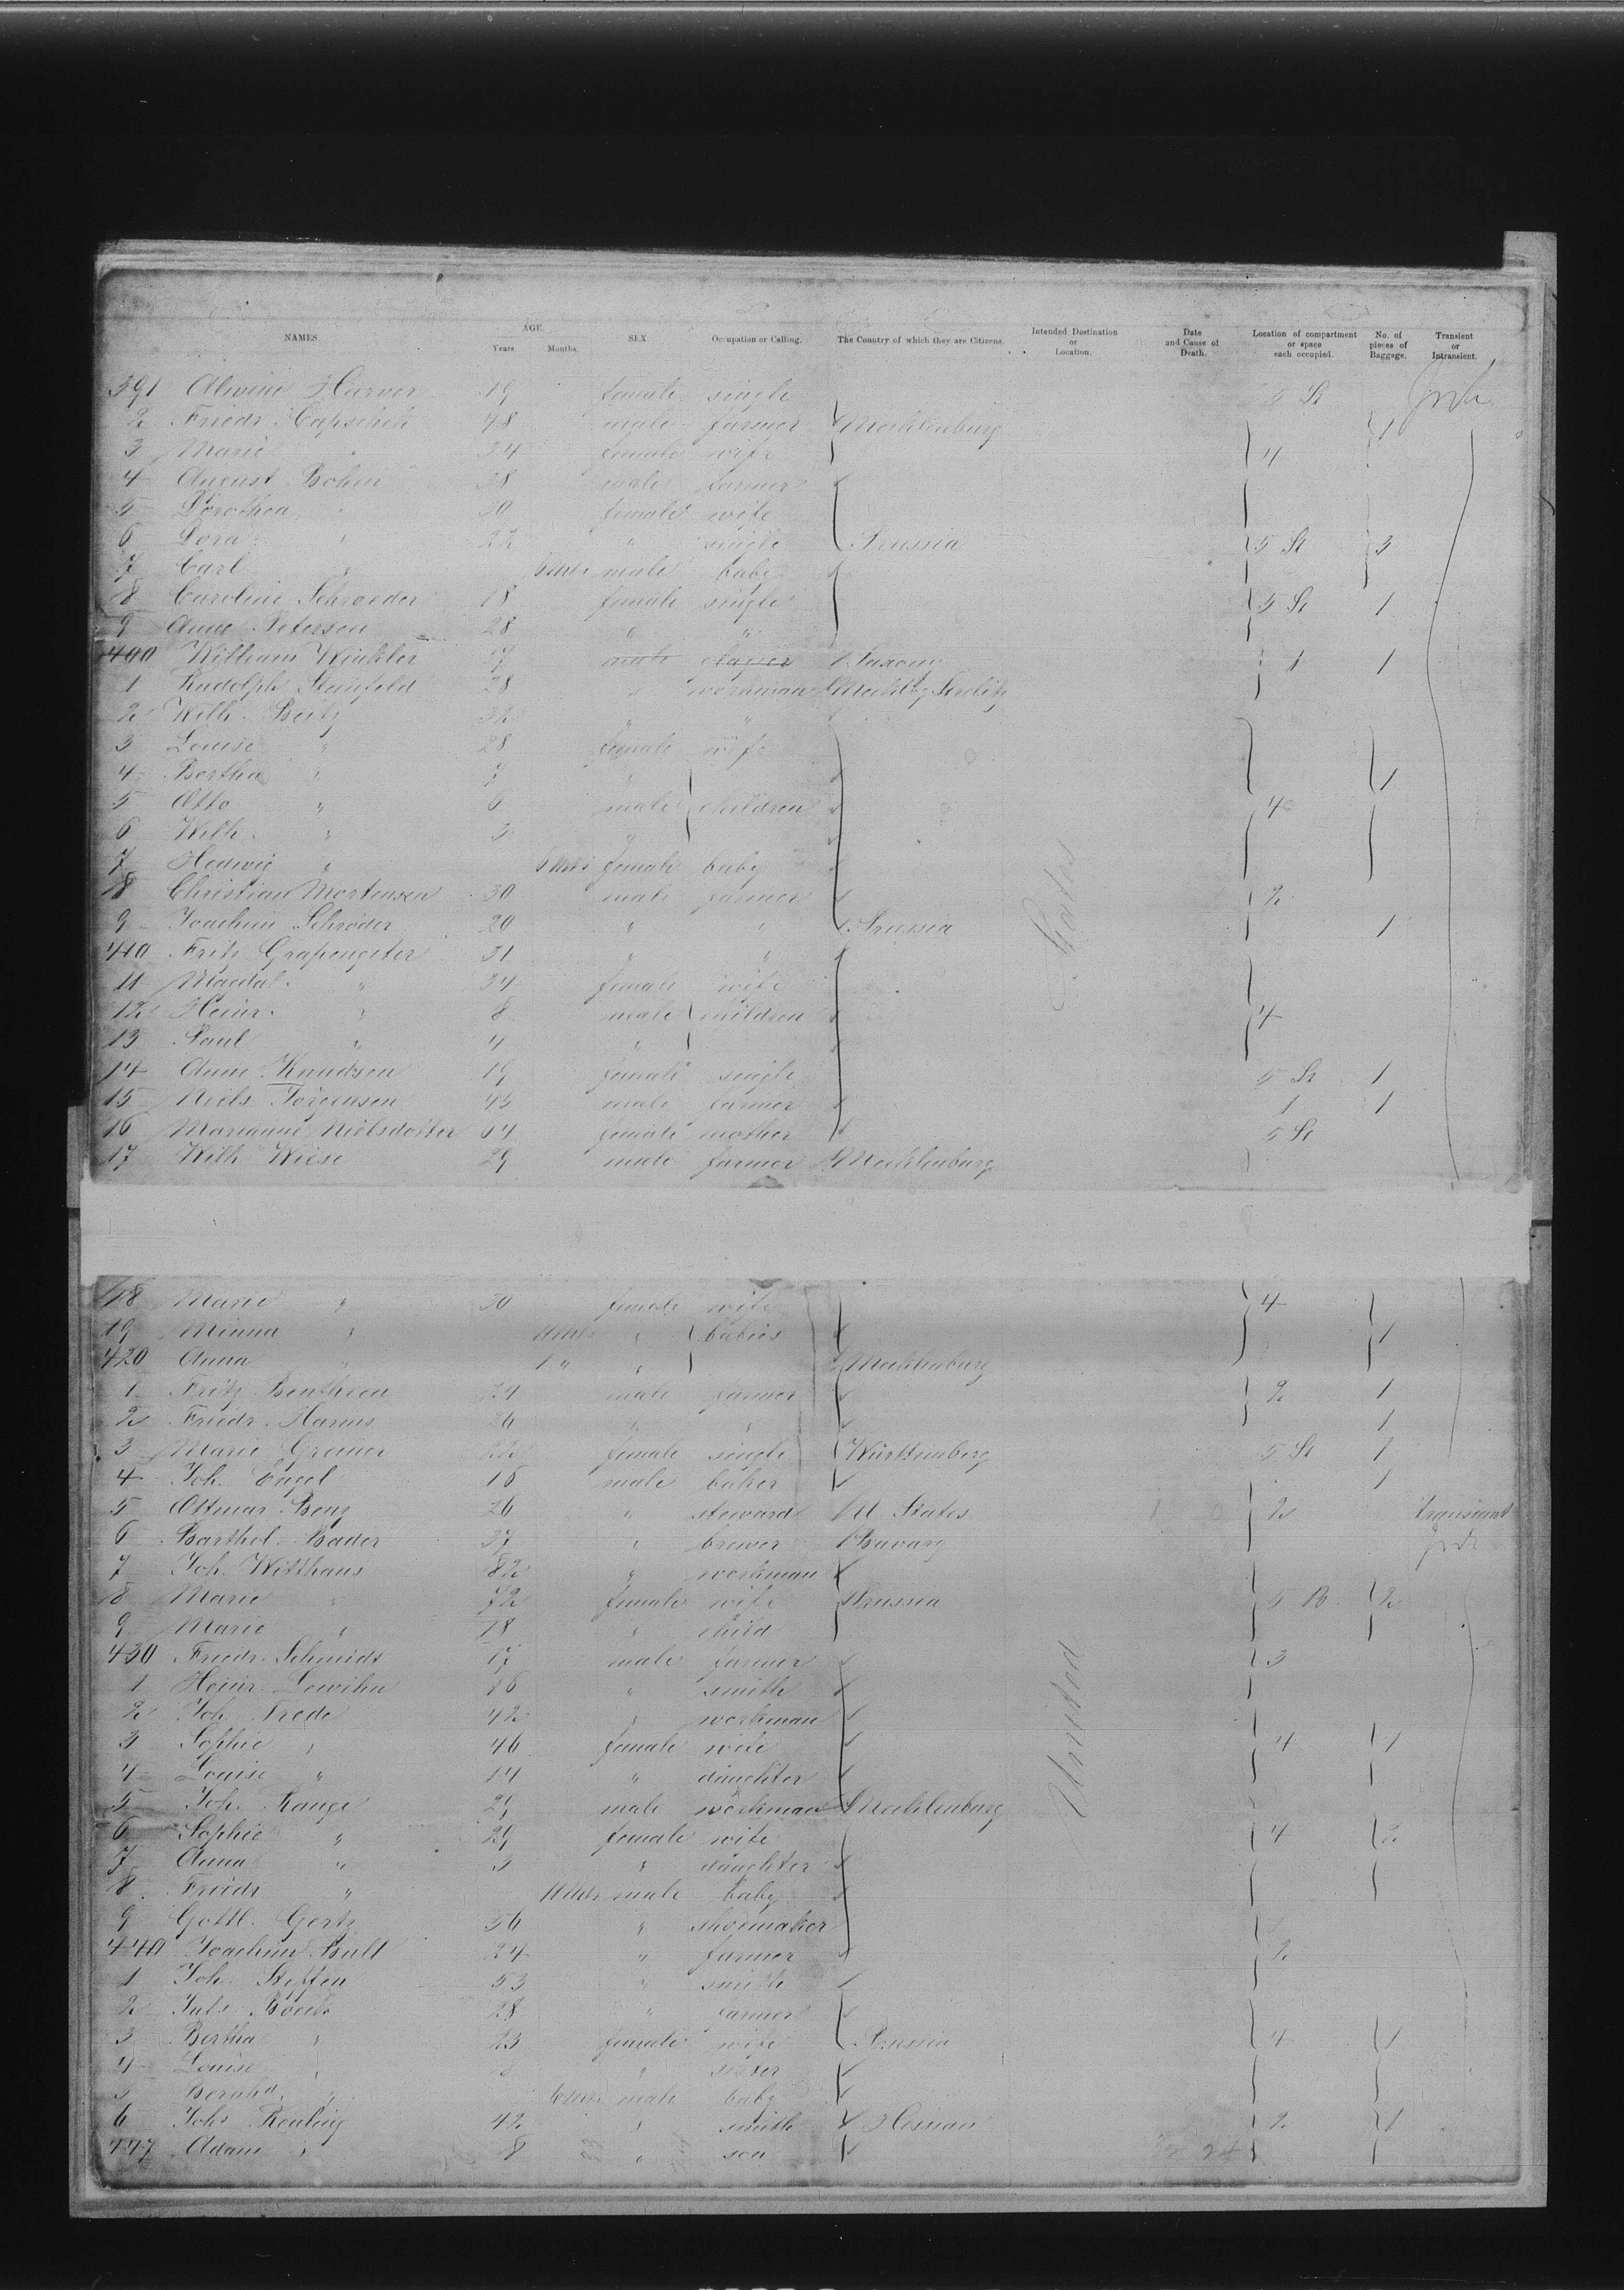 NAMES. AGE. Years Months. SEX Occupation or Calling. The Country of which they are Citizens. Intended Destination or Location. Date and Cause of Death. Location of compartment or space each occupied. No. of pieces of Baggage. Transient or Intransient.
391 Alwine Harver 19 female single 5 St
2 Friedr. 48 male farmer Mecklenburg 1
3 Marie " 34 female wife 4
4 August Böhm 38 male farmer
5 Dorothea " 30 female wife
6 Dora " 22 " single Prussia 5 St 3
7 Carl " male baby
8 Caroline Schroeder 18 female single 5 St 1
9 Anne Petersen 28 " "
400 William Winkler 37 male Saxony 1 1
1 Rudolph Steinfeld 28 " workman Mecklbg Strelitz
2 Wilh. Beitz 32 " "
3 Louise " 28 female wife
4 Bertha " 7 " 1
5 Otto " 6 male children 4
6 Wilh. " 3 "
7 Hedwig " female baby
8 Christian Mortensen 30 male farmer 2
9 Joachim Schröder 20 " " Prussia 1
410 Fritz Grapengeter 31 " "
11 Magdal. " 34 female wife
12 Heinr. " 8 male children 4
13 Paul " 4 "
14 Anne Knudsen 19 female single 5 St 1
15 Niels Jörgensen 45 male farmer 1 1
16 Marianne Nielsdotter 64 female mother 5 St
17 Wilh Wiese 29 male farmer Mecklenburg
418 Marie " 30 female wife 4
19 Minna " " babies 1
420 Anna " " Mecklenburg
1 Fritz Benthien 24 male farmer 2 1
2 Friedr. Harms 26 " " 1
3 Marie Greiner 22 female single Württemberg 5 St 1
4 Joh. Engel 16 male baker 1
5 Ottmar Benz 26 " steward U States 2 transient
6 Barthol. Bader 37 " brewer Bavary
7 Joh. Witthaus 82 " workman
8 Marie " 72 female wife Prussia 2
9 Marie " 18 " child
430 Friedr. Schmidt 17 male farmer 3
1 Heinr. 16 " smith
2 Joh. Trede 42 " workman
3 Sophie " 46 female wife 4 1
4 Louise " 14 " daughter
5 Joh. Range 29 male workman Mecklenburg
6 Sophie " 29 female wife 4 2
7 Anna " 3 " daughter
8 Friedr " male baby
9 Gottl. Gertz 56 " shoemaker
440 Joachim Bult 24 " farmer 2
1 Joh. Steffen 53 " smith
2 Juls 28 " farmer
3 Bertha " female wife Prussia 4 1
4 Louise " " sister
5 Bernhd. " male baby
6 Johs Reuling 42 " smith Hessian 2 1
447 Adam " 8 " son
United States